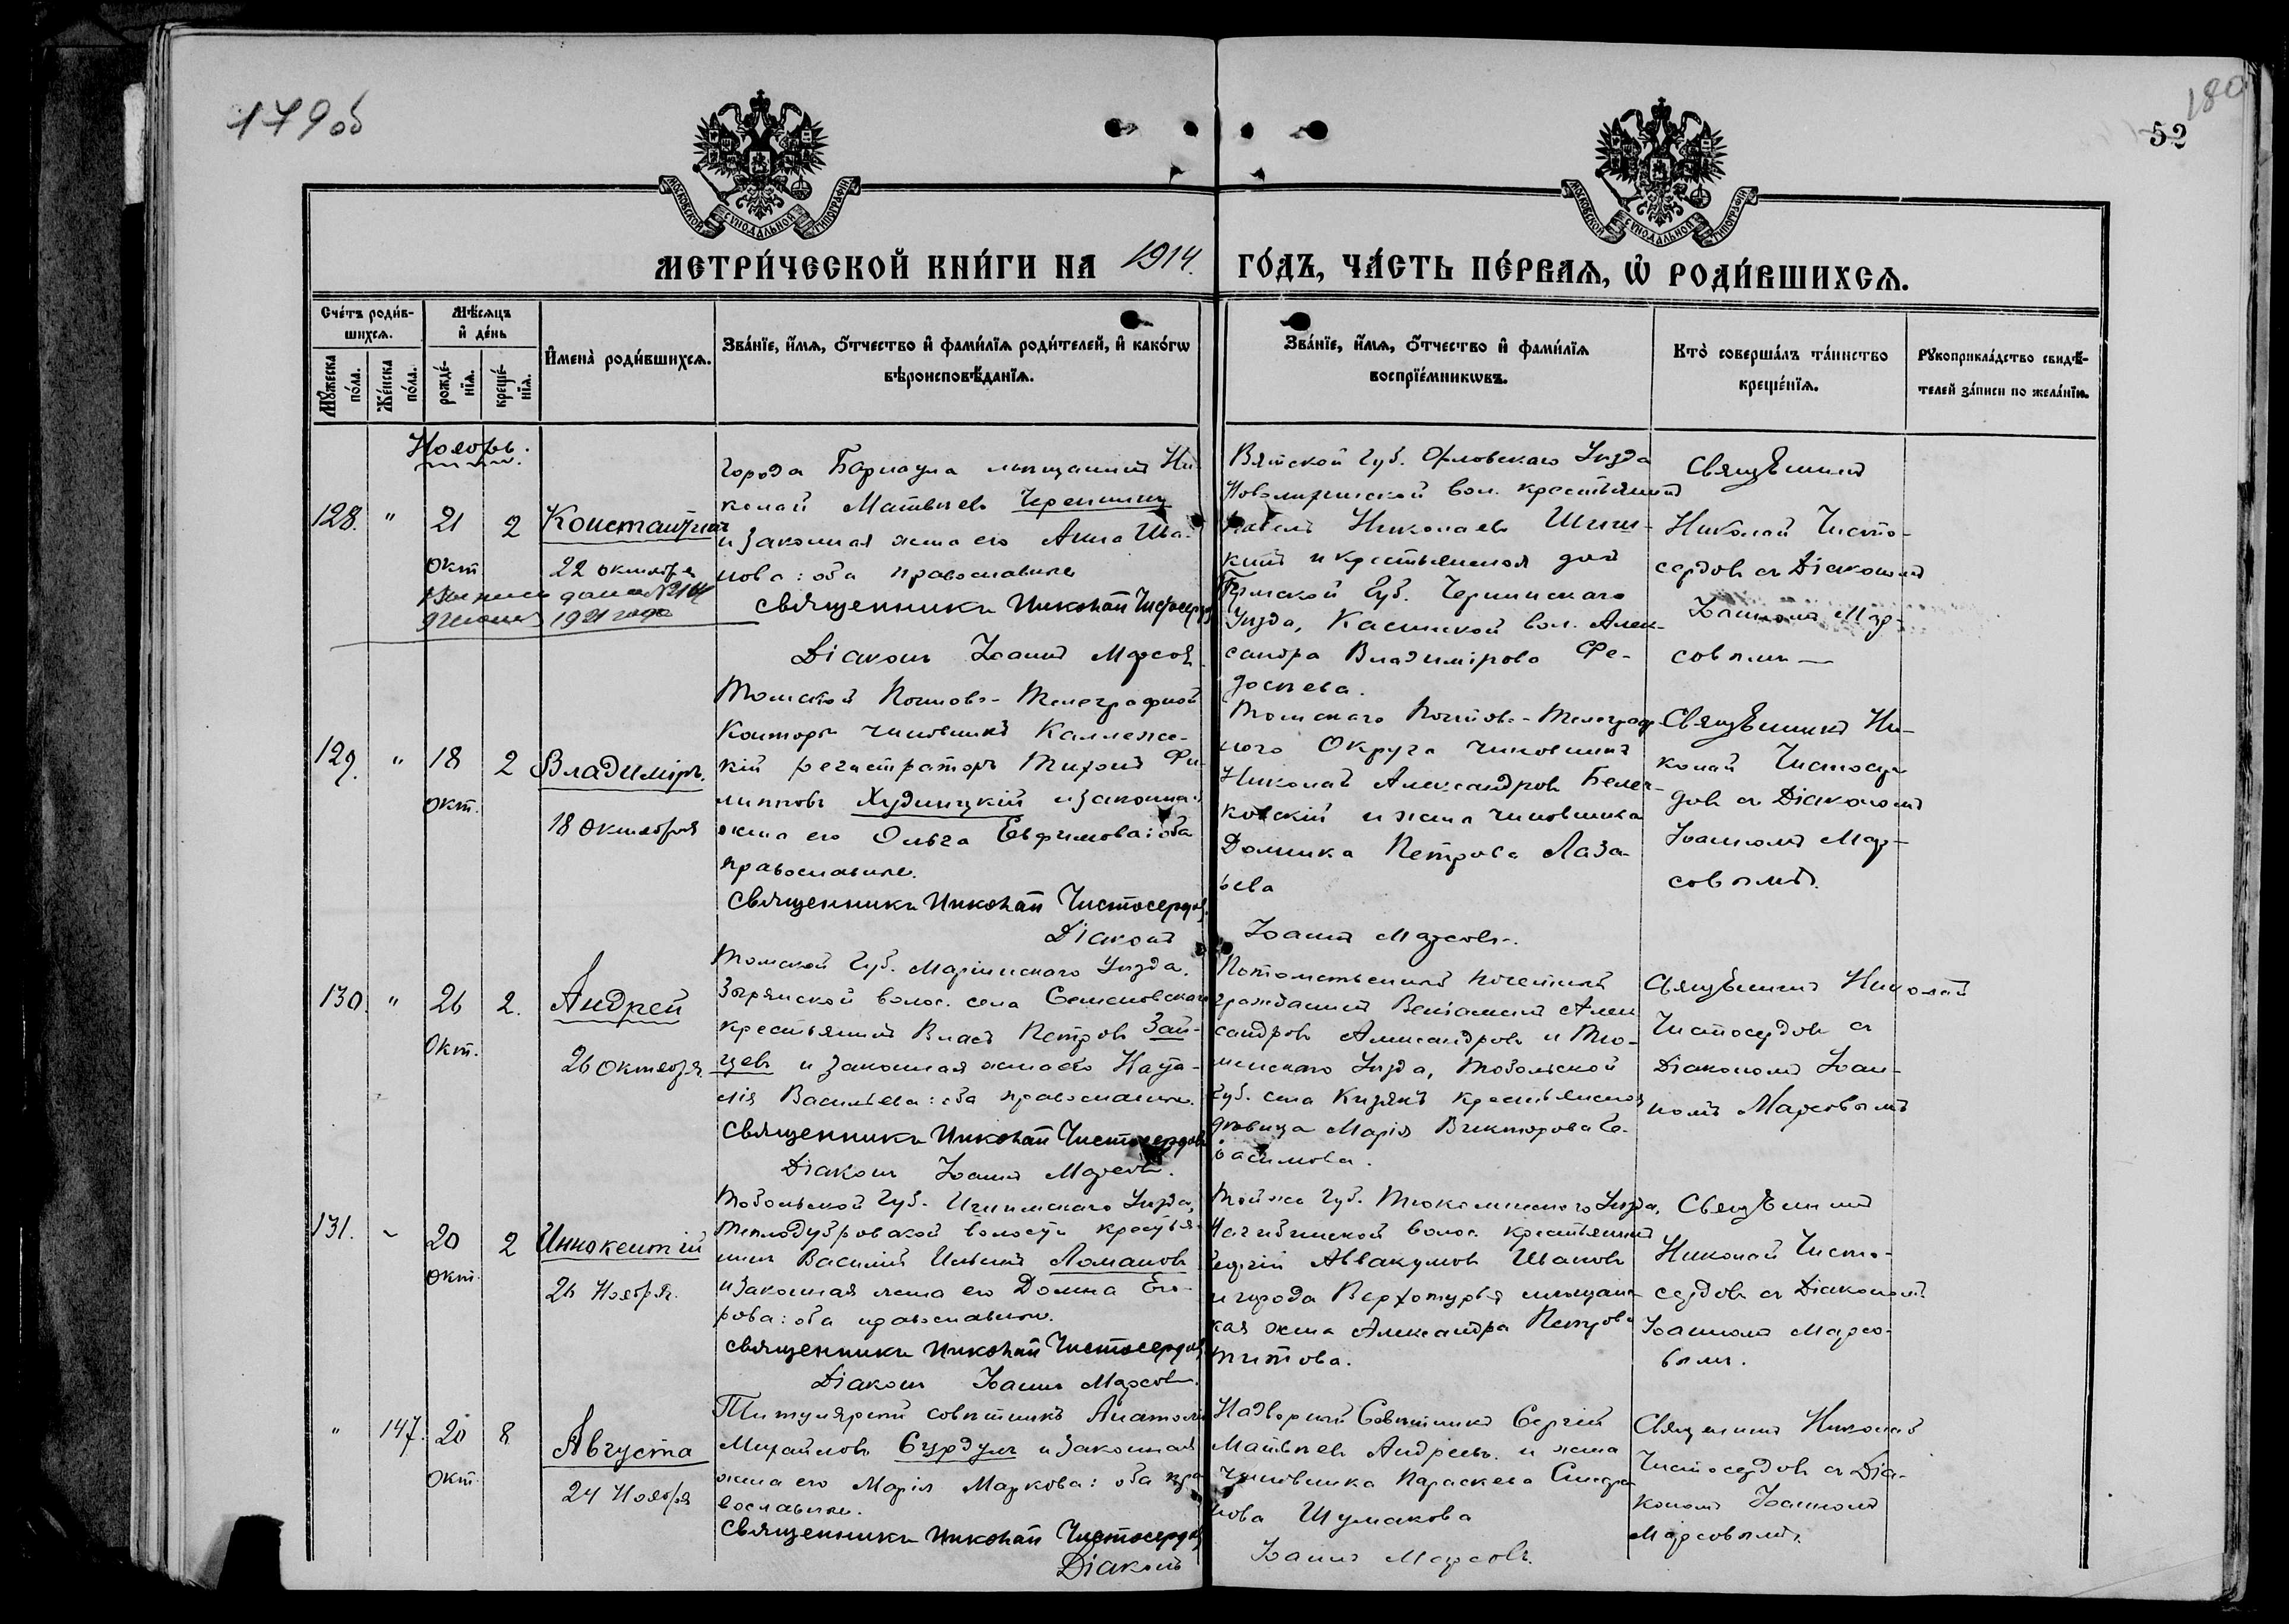 179 об
180
52
МОСКОВСКОЙ СѴНОДАЛЬНОЙ ТИПОГРАФІИ
МОСКОВСКОЙ СѴНОДАЛЬНОЙ ТИПОГРАФІИ
МЕТРИ́ЧЕСКОЙ КНИ́ГИ НА 1914. ГО́ДЪ, ЧА́СТЬ ПЕ́РВАѦ, Ѽ РОДИ́ВШИХСѦ.
Сче́тъ роди́в-
шихсѧ.
Мꙋ́жеска по́ла.
Же́нска по́ла.
Мѣ́сѧцъ и҆ де́нь
рожде́-
нїѧ.
креще́-
нїѧ.
И҆мена̀ роди́вшихсѧ.
Зва́нїе, и҆́мѧ, ѻ҆́тчество и҆ фами́лїѧ роди́телей, и҆ како́гѡ
вѣроисповѣ́данїѧ.
Зва́нїе, и҆́мѧ, ѻ҆́тчество и҆ фами́лїѧ
воспрїе́мникѡвъ.
Кто̀ соверша́лъ та́инство
креще́нїѧ.
Рꙋкоприкла́дство свидѣ́-
телей за́писи по жела́нїю.
Ноябрь.
128. " 21 2 Константинъ
окт
22 октября
1921 года
Города Барнаула мѣщанинъ Ни-
колай Матвѣевъ
и законная жена его Анна Ива-
нова: оба православные
Священникъ Николай Чистосердовъ
Діаконъ Іоаннъ Марсовъ
Вятской губ. Орловскаго Уѣзда
вол. крестьянинъ
Николаевъ Шиш-
кинъ и крестьянская дочь
Пермской Губ. Чердынскаго
Уѣзда, вол. Алек-
сандра Владимірова Фе-
досѣева.
Священникъ
Николай Чисто-
сердовъ съ Діакономъ
Іоанномъ Мар-
совымъ
129. " 18 2 Владиміръ.
окт.
18 октября
Томской Почтово-Телеграфной
Конторы чиновникъ Коллежс-
кій регистраторъ Тихонъ Фи-
липповъ Худницкій и законная
жена его Ольга Евфимова: оба
православные.
Священникъ Николай Чистосердовъ
Діаконъ Іоаннъ Марсовъ.
Томскаго Почтово-Телеграф-
ного Округа чиновникъ
Николай Александровъ
и жена чиновника
Домника Петрова Лаза-
рева
Священникъ Ни-
колай Чистосер-
довъ съ Діакономъ
Іоанномъ Мар-
совымъ.
130. " 26 2. Андрей
Окт.
26 Октября
Томской Губ. Маріинскаго Уѣзда.
Зырянской волос. села Семеновскаго
крестьянинъ Власъ Петровъ Зай-
цевъ и законная жена его Ната-
лія Васильева: оба православные.
Священникъ Николай Чистосердовъ
Діаконъ Іоаннъ Марсовъ.
Потомственный почетный
гражданинъ Веніаминъ Алек
сандровъ Александровъ и Тю-
менскаго Уѣзда, Тобольской
Губ. села крестьянская
дѣвица Марія Викторова
Священникъ Николай
Чистосердовъ съ
Діакономъ Іоан-
номъ Марсовымъ
131. " 20 2 Иннокентій
окт.
26 Ноября.
Тобольской Губ. Ишимскаго Уѣзда,
Теплодубровской волости крестья-
нинъ Василій Ильинъ Ломановъ
и законная жена его Домна Его-
рова: оба православные.
Священникъ Николай Чистосердовъ
Діаконъ Іоаннъ Марсовъ.
Той же Губ. Тюкалинскаго Уѣзда,
волос. крестьянинъ
Георгій Аввакумовъ Ивановъ
и города Верхотурья мѣщанс-
кая жена Александра Петрова
Титова.
Священникъ
Николай Чисто-
сердовъ съ Діакономъ
Іоанномъ Марсо-
вымъ.
" 147. 20 8 Августа
окт.
24 Ноября
Титулярный совѣтникъ Анатолій
Михайловъ и законная
жена его Марія Маркова: оба пра
вославные.
Священникъ Николай Чистосердовъ
Діаконъ Іоаннъ Марсовъ.
Надворный Совѣтникъ Сергій
Матвѣевъ Андреевъ и жена
чиновника Параскева
Шумакова
Священникъ Николай
Чистосердовъ съ Діа-
кономъ Іоанномъ
Марсовымъ.